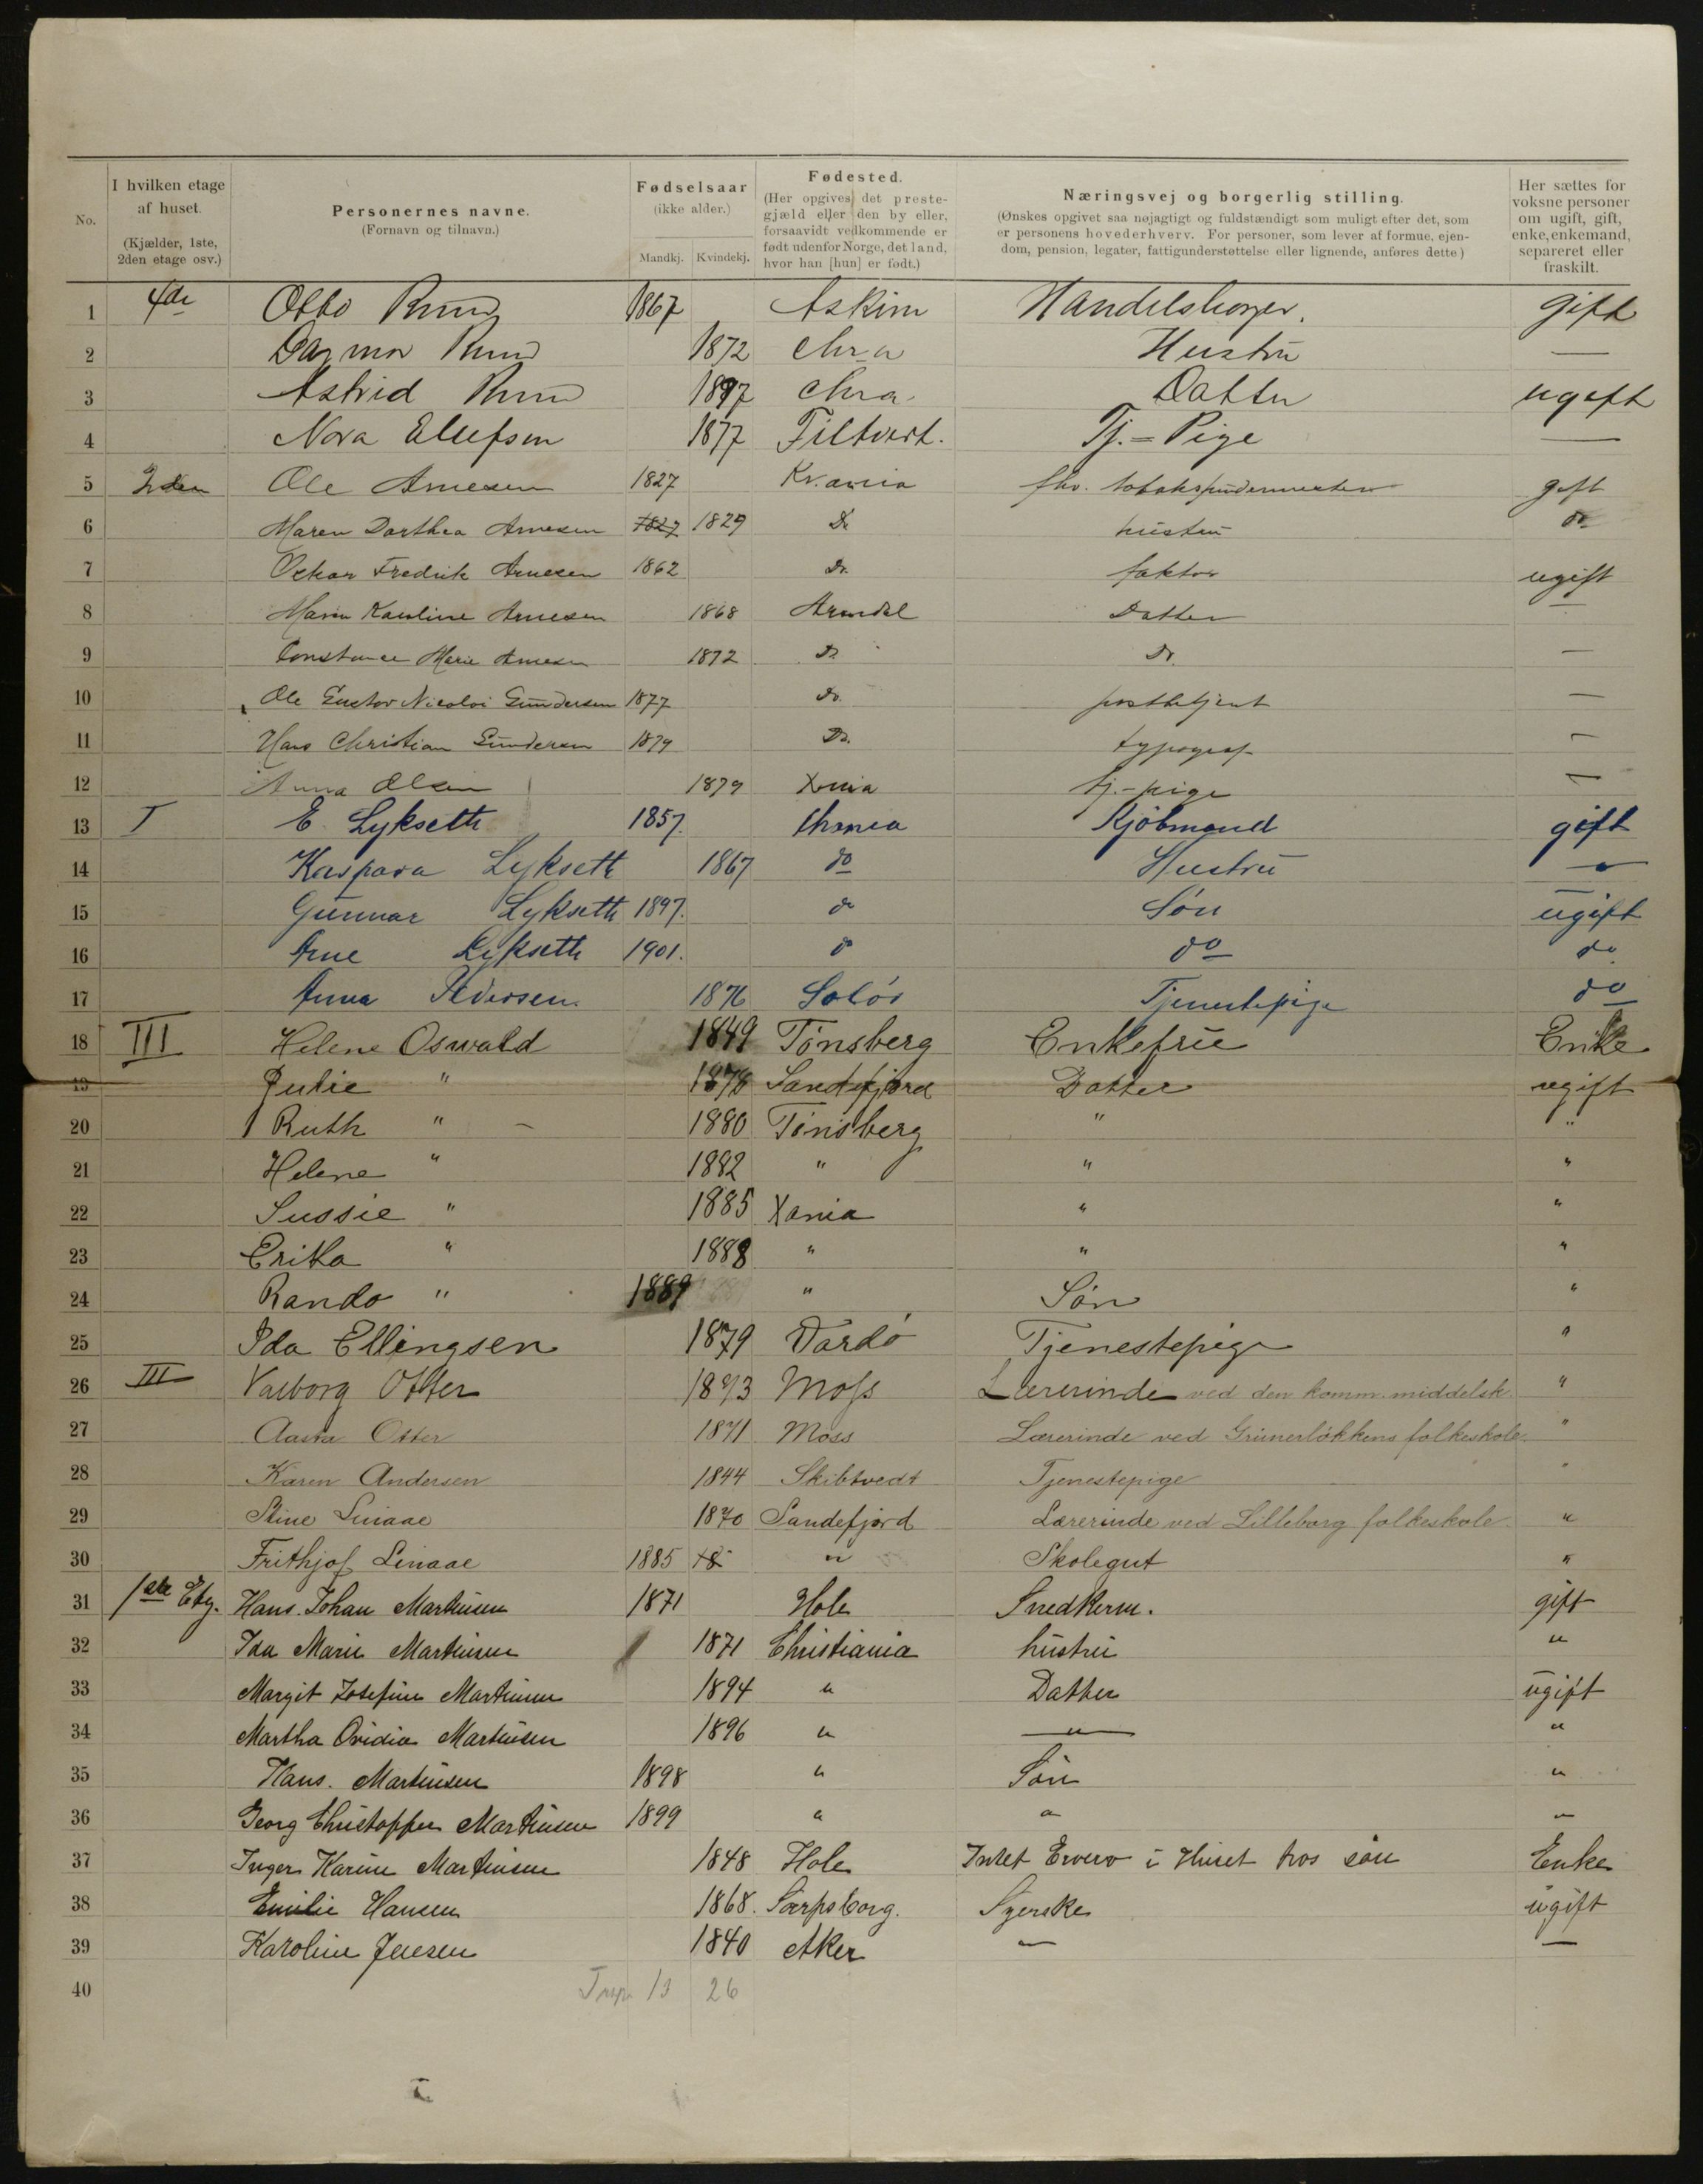 No. I hvilken etage af huset. (Kjælder, 1ste, 2den etage osv.) Personernes navne. (Fornavn og tilnavn.) Fødselsaar (ikke alder.) Mandkj. Kvindekj. Fødested. (Her opgives det prestegjæld eller den by eller, forsaavidt vedkommende er født udenfor Norge, det land, hvor han [hun] er født.) Næringsvej og borgerlig stilling. (Ønskes opgivet saa nøjagtigt og fuldstændigt som muligt efter det, som er personens hovederhverv. For personer, som lever af formue, ejendom, pension, legater, fattigunderstøttelse eller lignende, anføres dette) Her sættes for voksne personer om ugift, gift, enke, enkemand, separeret eller fraskilt.
1 4de Otto Ruud 1867 Askim Handelsborger. gift
2 Dagmar Ruud 1872 Chra Hustru —
3 Astrid Ruud 1897 Chra Datter ugift
4 Nora Ellefsen 1877 Filtvert. Tj.=Pige —
5 2den Ole Arnesen 1827 Kr.ania fhv. gift
6 Maren Dorthea Arnesen 1827 1829 Do hustru do
7 Oskar Fredrik Arnesen 1862 Do. faktor ugift
8 Maren Kauline Arnesen 1868 Arendal Datter —
9 Constance Marie Arnesen 1872 Do Do. —
10 Ole Gustav Nicolai Gundersen 1877 Do. postbetjent —
11 Hans Christian Gundersen 1879 Do. typograf —
12 Anna Olsen 1879 Xania tj.-pige —
13 I E. Lykseth 1857. Chrania Kjøbmand gift
14 Kaspara Lykseth 1867 do Hustru
15 Gunnar Lykseth 1897. do Søn ugift
16 Arne Lykseth 1901. do do do
17 Anna Pedersen. 1876 Solør Tjenestepige do
18 III Helene Oswald 1849 Tønsberg Enkefrue Enke
19 Julie " 1878 Sandefjord Datter ugift
20 Ruth " – 1880 Tønsberg " "
21 Helene " 1882 " " "
22 Sussie " 1885 Xania " "
23 Erika " 1888 " " "
24 Rando " 1889 " Søn "
25 Ida Ellingsen 1879 Vardø Tjenestepige "
26 III Valborg Otter 1873 Moss Lærerinde ved den komm. middelsk "
27 Aasta Otter 1871 Moss Lærerinde ved Grünerløkkens folkeskole. "
28 Karen Andersen 1844 Skibtvedt Tjenestepige "
29 Stine Linaae 1870 Sandefjord Lærerinde ved Lilleborg folkeskole "
30 Frithjof Linaae 1885 18 " Skolegut "
31 1ste Etg. Hans Johan Martinsen 1871 Hole Snedkerm. gift
32 Ida Marie Martinsen 1871 Christiania hustru "
33 Margit Josefine Martinsen 1894 " Datter ugift
34 Martha Ovidia Martinsen 1896 " —"— "
35 Hans. Martinsen 1898 " Søn "
36 Georg Christoffer Martinsen 1899 " " "
37 Inger Karine Martinsen 1848 Hole Intet Erverv i Huset hos søn Enke
38 Emilie Hansen 1868. Sarpsborg. Syerske ugift
39 Karoline Jensen 1840 Aker — —
40 13 26